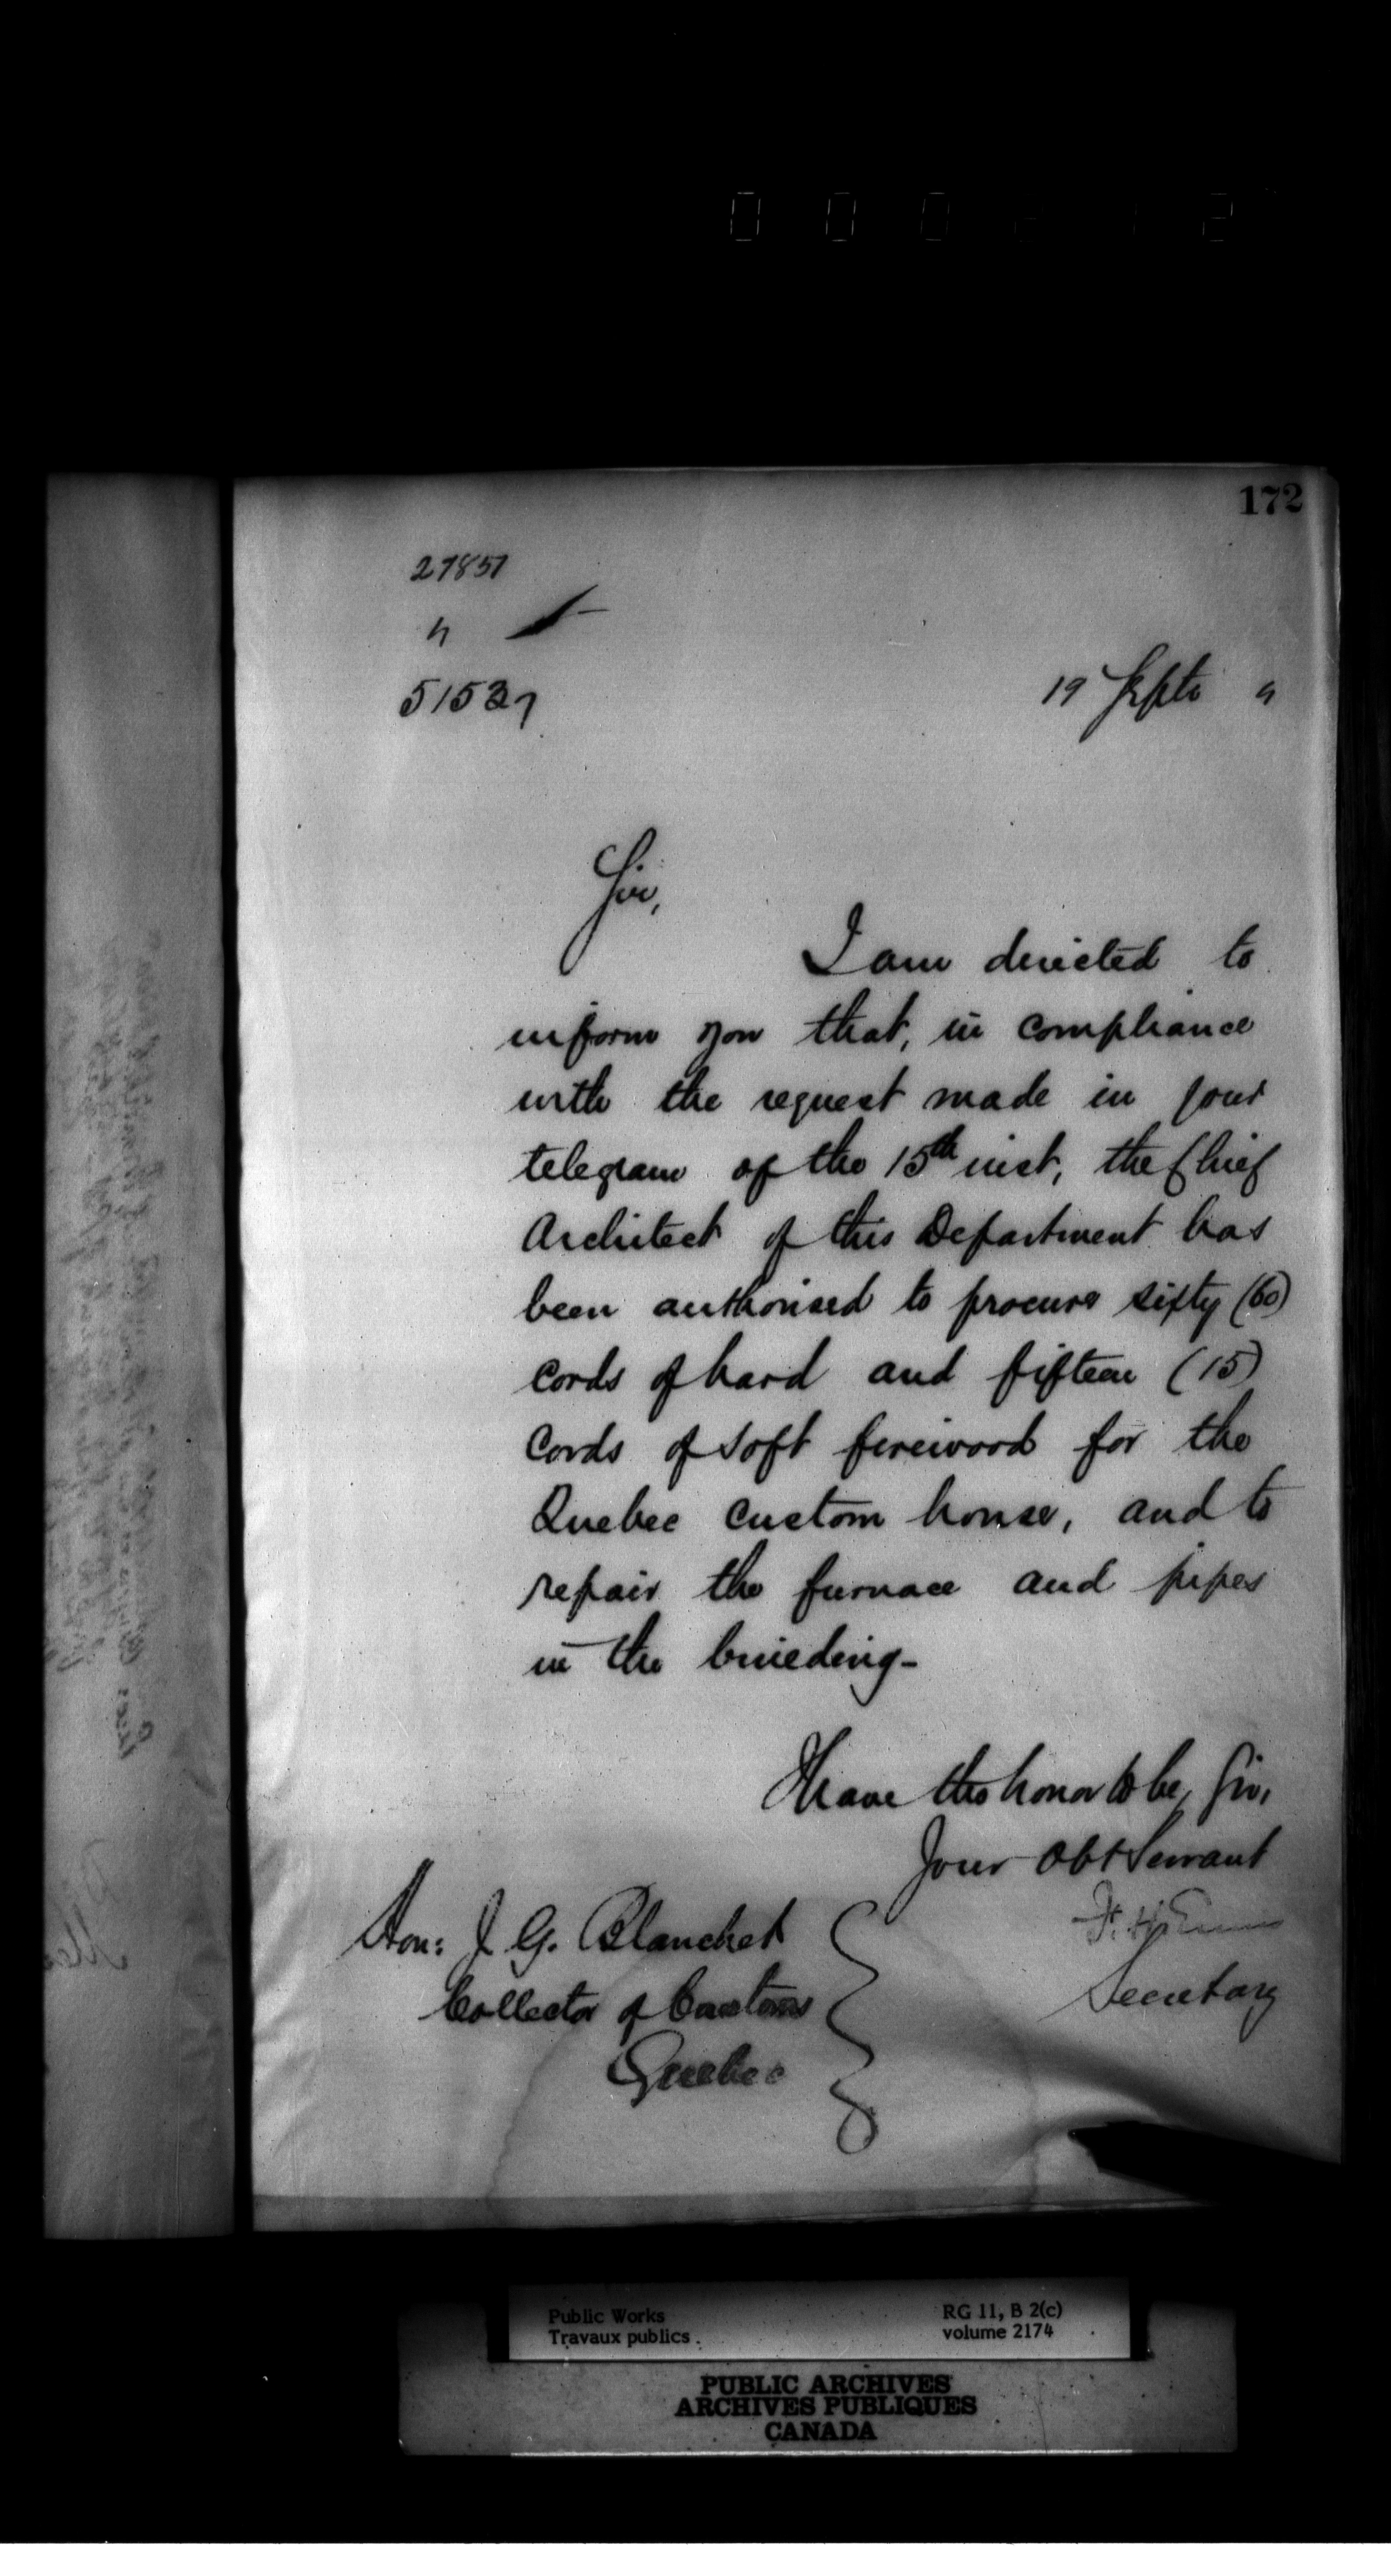 172
27857
"
51537
19 Septr "
Sir,
I am directed to
inform you that, in compliance
with the request made in your
telegram of the 15th inst, the Chief
Architect of this Department has
been authorised to procure sixty (60)
cords of hard and fifteen (15)
cords of soft firewood for the
Quebec custom house, and to
repair the furnace and pipes
in the building-
I have the honor to be, Sir,
Your Obt Servant
Secretary
Hon: J. G. Blanchet
Collector of Customs
Quebec
Public Works
Travaux publics
RG 11, B 2(c)
volume 2174
PUBLIC ARCHIVES
ARCHIVES PUBLIQUES
CANADA